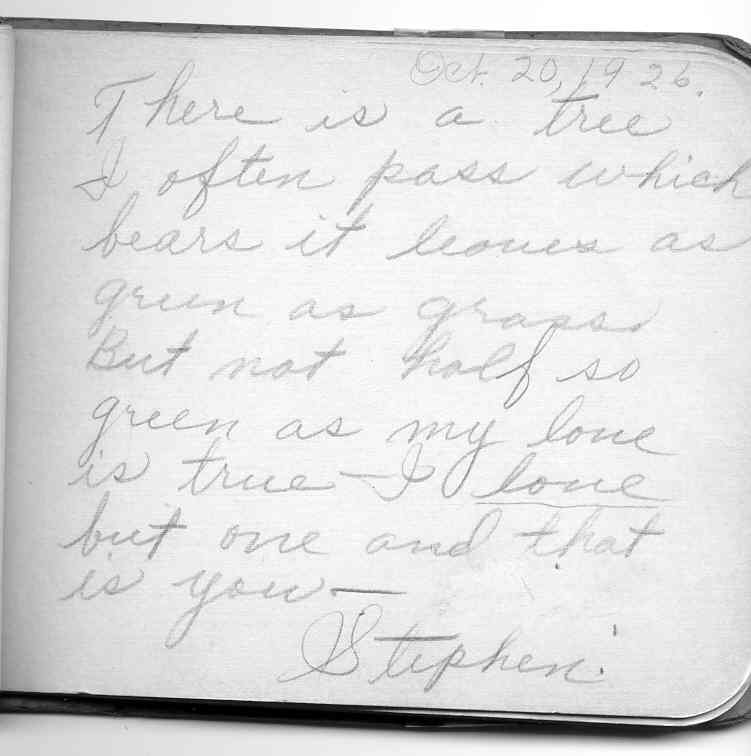 Oct. 20, 1926.
There is a tree
I often pass which
bears it leaves as
green as grass
But not half so
green as my love
is true — I love
but one and that
is you —
Stephen.